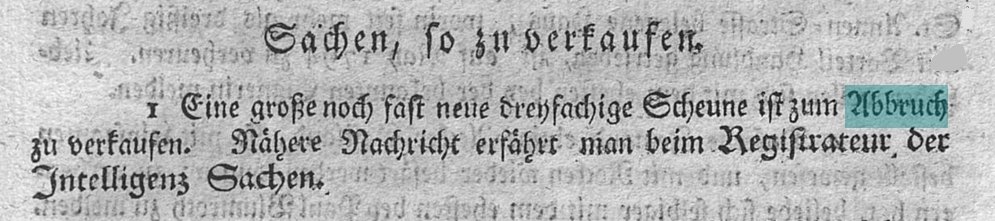 Sachen, so zu verkaufen.
1 Eine große noch fast neue dreyfachige Scheune ist zum Abbruch
zu verkaufen. Nähere Nachricht erfährt man beim Registrateur der
Intelligenz Sachen.